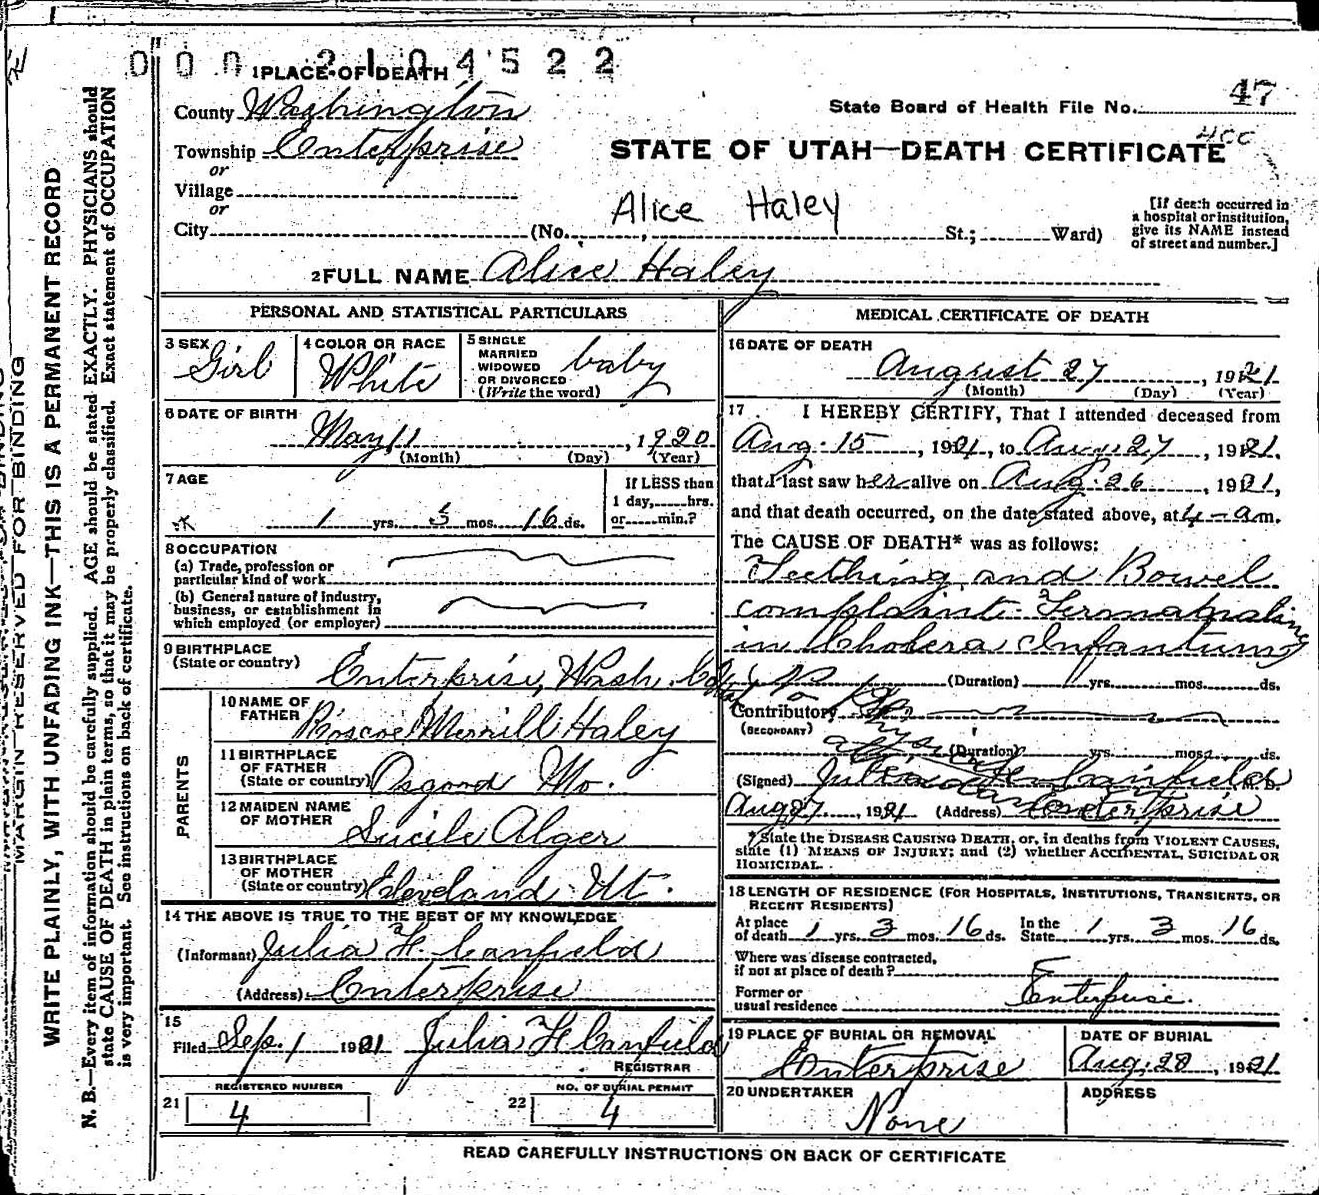 000 2104522
1 PLACE OF DEATH
County Washington
State Board of Health File No. 47
Township Enterprise
STATE OF UTAH—DEATH CERTIFICATE
or
Village
or
Alice Haley
City (No. , St.; Ward)
[If death occurred in
a hospital or institution,
give its NAME instead
of street and number.]
2 FULL NAME Alice Haley
PERSONAL AND STATISTICAL PARTICULARS
3 SEX Girl
4 COLOR OR RACE White
5 SINGLE
MARRIED
WIDOWED
OR DIVORCED
(Write the word) baby
6 DATE OF BIRTH
May 11, 1920
(Month) (Day) (Year)
7 AGE
1 yrs. mos. 16 ds.
If LESS than
1 day, hrs.
or min.?
8 OCCUPATION
(a) Trade, profession or
particular kind of work
(b) General nature of industry,
business, or establishment in
which employed (or employer)
9 BIRTHPLACE
(State or country)
Enterprise, Wash. Co
PARENTS
10 NAME OF
FATHER Roscoe Merrill Haley
11 BIRTHPLACE
OF FATHER
(State or country) Osgood Mo.
12 MAIDEN NAME
OF MOTHER Lucile Alger
13 BIRTHPLACE
OF MOTHER
(State or country) Cleveland Ut.
14 THE ABOVE IS TRUE TO THE BEST OF MY KNOWLEDGE
(Informant) Julia F. Canfield
(Address) Enterprise
15
Filed Sep. 1 1921 Julia F Canfield
REGISTRAR
REGISTERED NUMBER
21 4
NO. OF BURIAL PERMIT
22 4
MEDICAL CERTIFICATE OF DEATH
16 DATE OF DEATH
August 27, 1921
(Month) (Day) (Year)
17 I HEREBY CERTIFY, That I attended deceased from
Aug. 15, 1921, to Aug. 27, 1921.
that I last saw her alive on Aug. 26, 1921,
and that death occurred, on the date stated above, at 4-a m.
The CAUSE OF DEATH* was as follows:
Teething and Bowel
complaint- Termanating
in Cholera Infantum
(Duration) yrs. mos. ds.
Contributory
(SECONDARY)
(Duration) yrs. mos. ds.
(Signed) Julia F. Canfield M. D.
Aug 27, 1921 (Address) Enterprise
* State the DISEASE CAUSING DEATH, or, in deaths from VIOLENT CAUSES,
state (1) MEANS OF INJURY; and (2) whether ACCIDENTAL, SUICIDAL OR
HOMICIDAL.
18 LENGTH OF RESIDENCE (FOR HOSPITALS, INSTITUTIONS, TRANSIENTS, OR
RECENT RESIDENTS)
At place
of death 1 yrs. 3 mos. 16 ds. In the
State 1 yrs. 3 mos. 16 ds.
Where was disease contracted,
if not at place of death?
Former or
usual residence Enterprise.
19 PLACE OF BURIAL OR REMOVAL
Enterprise
DATE OF BURIAL
Aug. 28, 1921
20 UNDERTAKER
None
ADDRESS
READ CAREFULLY INSTRUCTIONS ON BACK OF CERTIFICATE
MARGIN RESERVED FOR BINDING
WRITE PLAINLY, WITH UNFADING INK—THIS IS A PERMANENT RECORD
N. B.—Every item of information should be carefully supplied. AGE should be stated EXACTLY. PHYSICIANS should
state CAUSE OF DEATH in plain terms, so that it may be properly classified. Exact statement of OCCUPATION
is very important. See instructions on back of certificate.